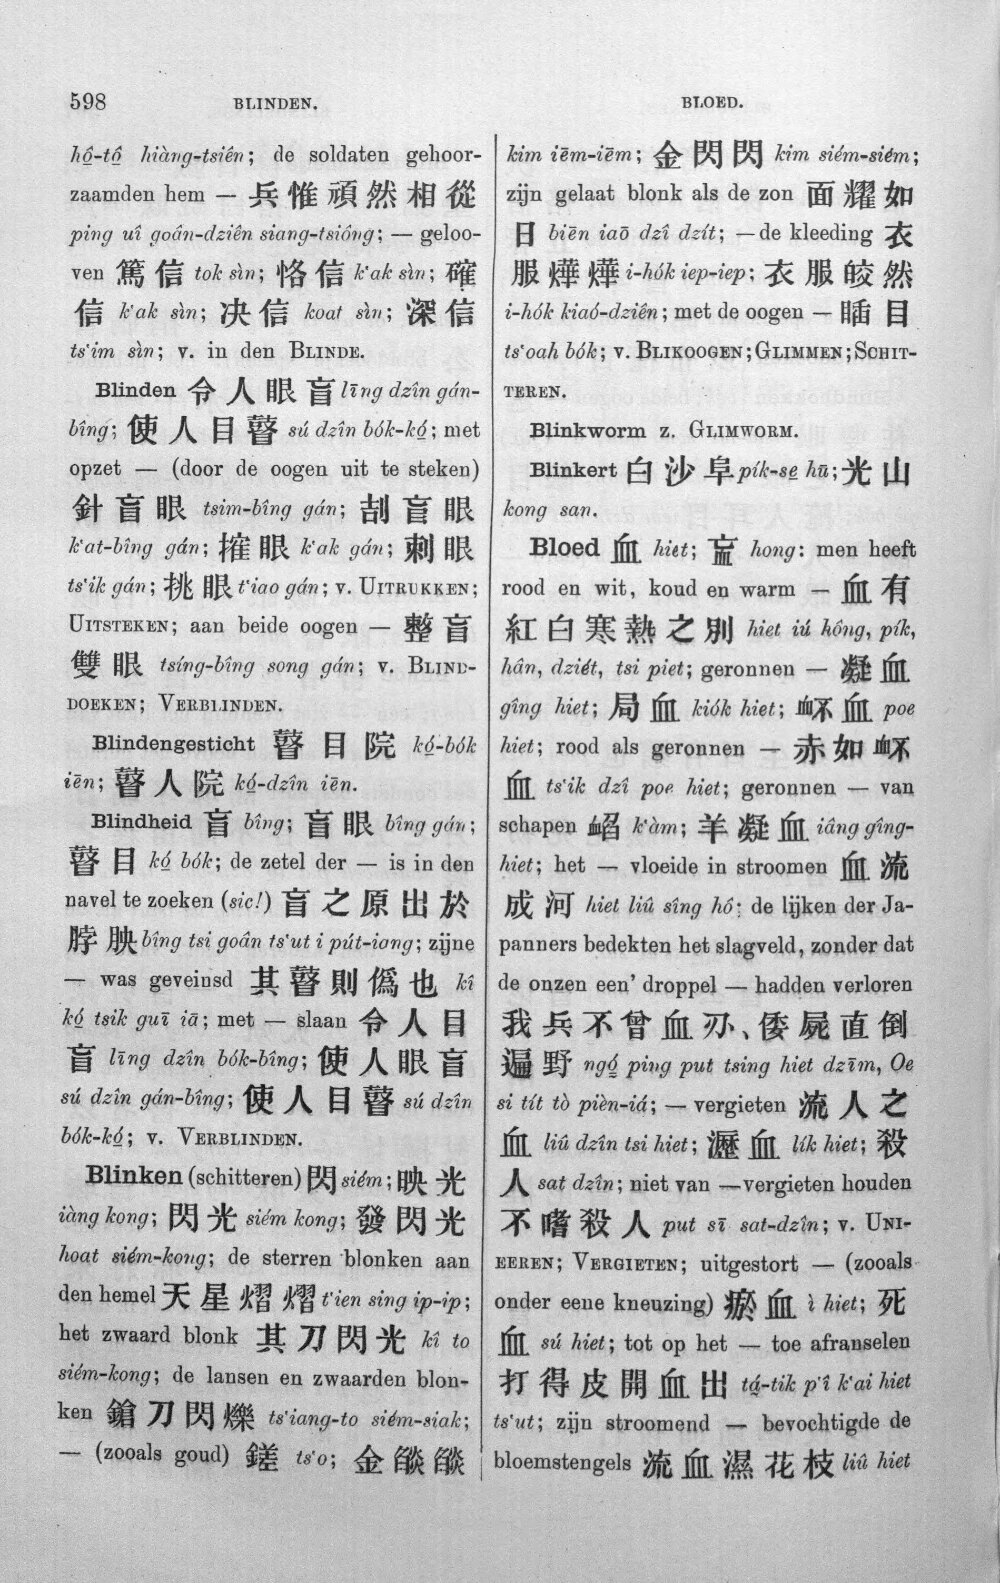 598
BLINDEN.
BLOED.
hô̤-tô̤ hiàng-tsiên; de soldaten gehoor-
zaamden hem — 兵惟頑然相從
ping uî goân-dziên siang-tsiông; — geloo-
ven 篤信 tok sìn; 恪信 k‘ak sìn; 確
信 k‘ak sìn; 决信 koat sìn; 深信
ts‘im sìn; v. in den BLINDE.
Blinden 令人眼盲 līng dzîn gán-
bîng; 使人目瞽 sú dzîn bók-kó̤; met
opzet — (door de oogen uit te steken)
針盲眼 tsim-bîng gán; 刮盲眼
k‘at-bîng gán; 搉眼 k‘ak gán; 刺眼
ts‘ik gán; 挑眼 t‘iao gán; v. UITRUKKEN;
UITSTEKEN; aan beide oogen — 整盲
雙眼 tsíng-bîng song gán; v. BLIND-
DOEKEN; VERBLINDEN.
Blindengesticht 瞽目院 kó̤-bók
iēn; 瞽人院 kó̤-dzîn iēn.
Blindheid 盲 bîng; 盲眼 bîng gán;
瞽目 kó̤ bók; de zetel der — is in den
navel te zoeken (sic!) 盲之原出於
脖胦 bîng tsi goân ts‘ut i pút-iang; zijne
— was geveinsd 其瞽則僞也 kî
kó̤ tsik guī iā; met — slaan 令人目
盲 līng dzîn bók-bîng; 使人眼盲
sú dzîn gán-bîng; 使人目瞽 sú dzîn
bók-kó̤; v. VERBLINDEN.
Blinken (schitteren) 閃 siém; 映光
iàng kong; 閃光 siém kong; 發閃光
hoat siém-kong; de sterren blonken aan
den hemel 天星熠熠 t‘ien sing ip-ip;
het zwaard blonk 其刀閃光 kî to
siém-kong; de lansen en zwaarden blon-
ken 鎗刀閃爍 ts‘iang-to siém-siak;
— (zooals goud) 鎈 ts‘o; 金燄燄
kim iēm-iēm; 金閃閃 kim siém-siém;
zijn gelaat blonk als de zon 面耀如
日 biēn iaō dzî dzít; — de kleeding 衣
服燁燁 i-hók iep-iep; 衣服皎然
i-hók kiaó-dziên; met de oogen — 䀨目
ts‘oah bók; v. BLIKOOGEN; GLIMMEN; SCHIT-
TEREN.
Blinkworm z. GLIMWORM.
Blinkert 白沙阜 pík-se̤ hū; 光山
kong san.
Bloed 血 hiet; 衁 hong: men heeft
rood en wit, koud en warm — 血有
紅白寒熱之別 hiet iú hông, pík,
hân, dziét, tsi piet; geronnen — 凝血
gîng hiet; 局血 kiók hiet; 衃血 poe
hiet; rood als geronnen — 赤如衃
血 ts‘ik dzî poe hiet; geronnen — van
schapen 衉 k‘àm; 羊凝血 iâng gîng-
hiet; het — vloeide in stroomen 血流
成河 hiet liû sîng hô: de lijken der Ja-
panners bedekten het slagveld, zonder dat
de onzen een’ droppel — hadden verloren
我兵不曾血刅、倭屍直倒
遍野 ngó̤ ping put tsing hiet dzīm, Oe
si tít tò pièn-iá; — vergieten 流人之
血 liû dzîn tsi hiet; 瀝血 lík hiet; 殺
人 sat dzîn; niet van — vergieten houden
不嗜殺人 put sī sat-dzîn; v. UNI-
EEREN; VERGIETEN; uitgestort — (zooals
onder eene kneuzing) 瘀血 ì hiet; 死
血 sú hiet; tot op het — toe afranselen
打得皮開血出 tá̤-tik p‘î k‘ai hiet
ts‘ut; zijn stroomend — bevochtigde de
bloemstengels 流血濕花枝 liû hiet